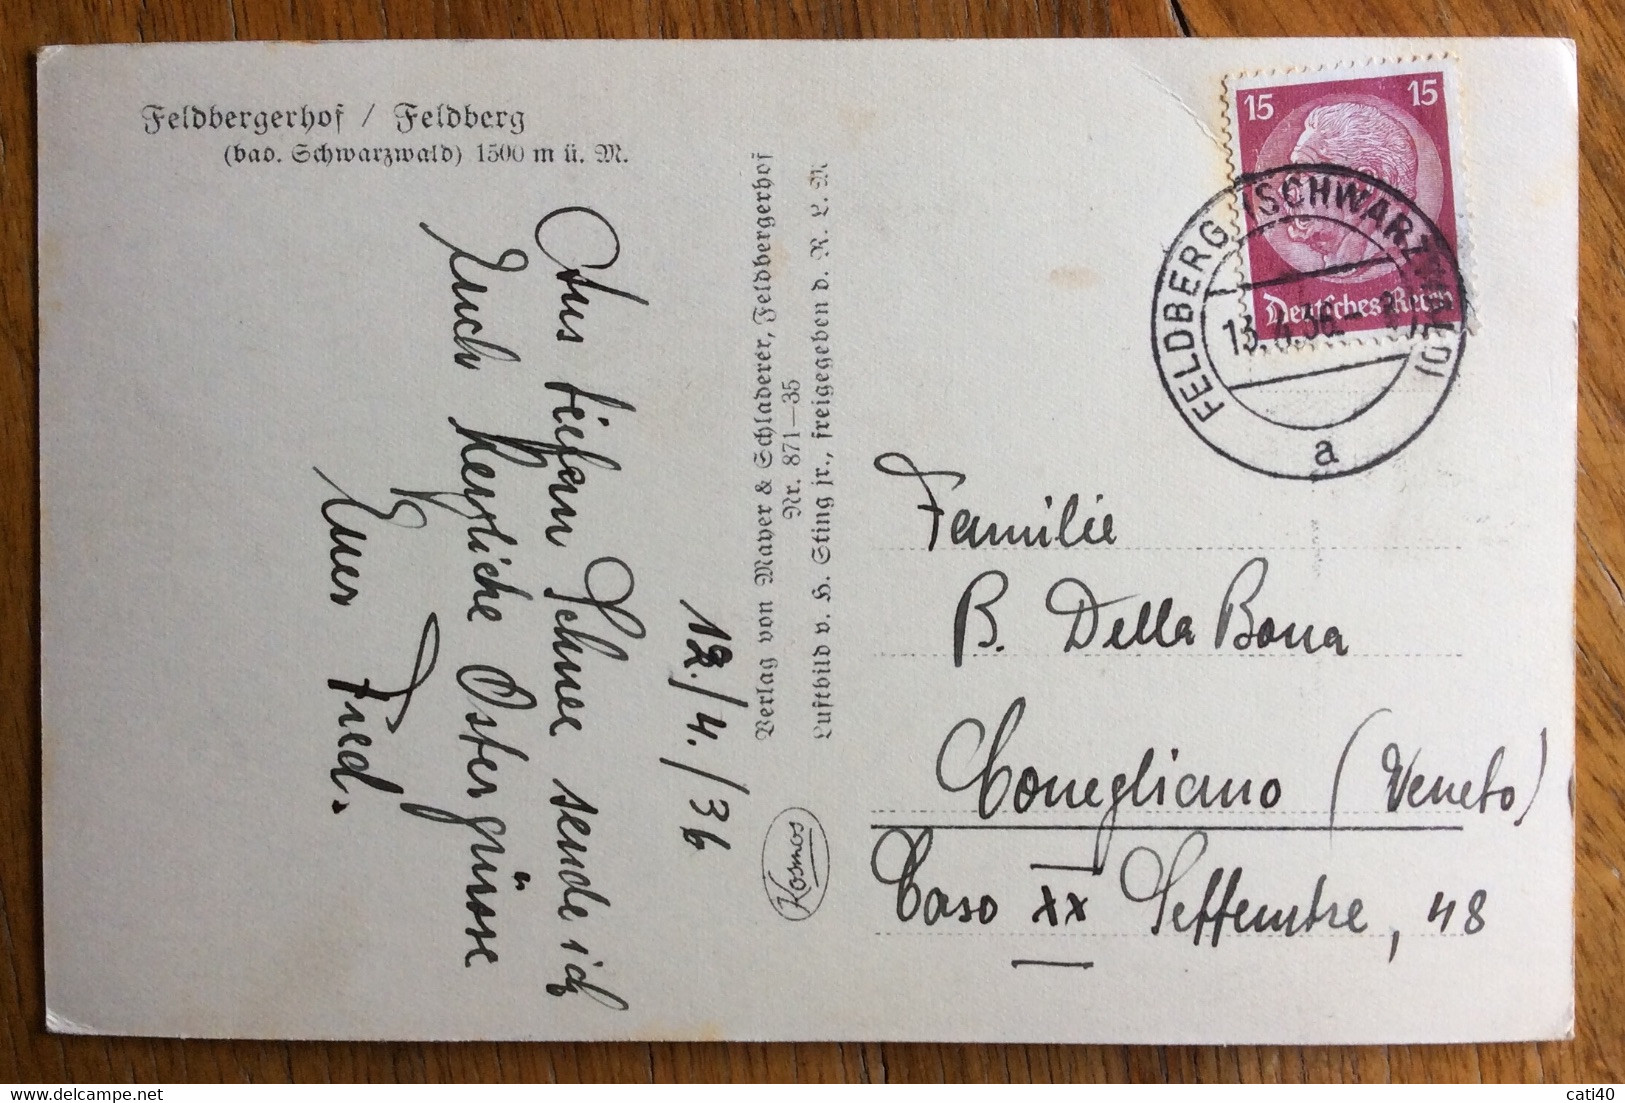 Feldbergerhof / Feldberg
(bad. Schwarzwald) 1500 m ü. M.
Aus tiefem Schnee sende ich
Euch herzliche Ostergrüsse
Euer Fried.
12./4./36
Verlag von Mayer & Schladerer, Feldbergerhof
Nr. 871—35
Luftbild v. H. Sting jr., freigegeben d. R. L. M
Kosmos
15 15
Deutsches Reich
FELDBERG (SCHWARZWALD)
13.4.36.-
a
Familie
B. Della Bona
Conegliano (Veneto)
Corso XX Settembre, 48
cati40